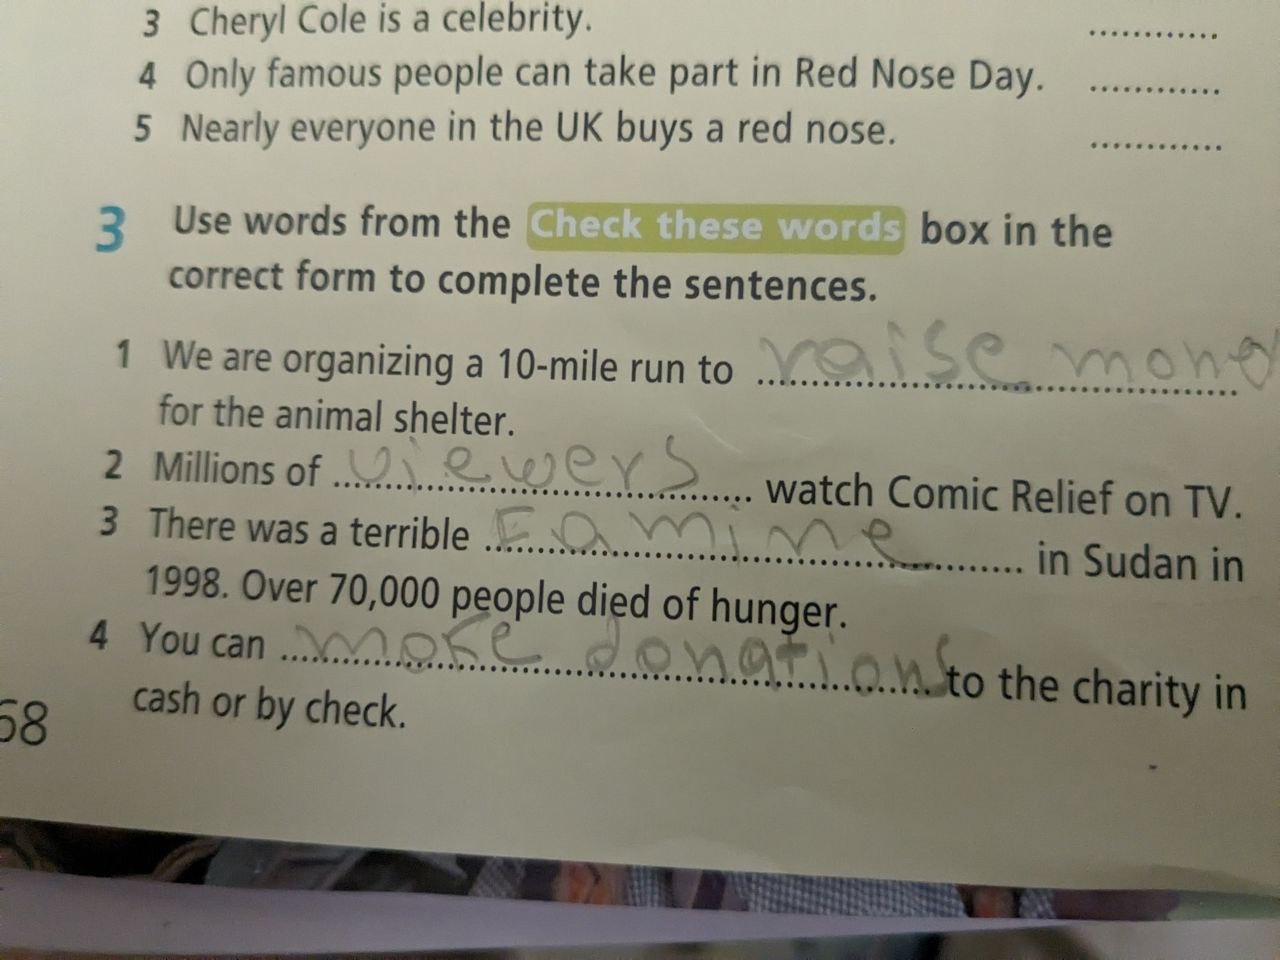 3 Cheryl Cole is a celebrity. ............
4 Only famous people can take part in Red Nose Day. ............
5 Nearly everyone in the UK buys a red nose. ............
3 Use words from the Check these words box in the
correct form to complete the sentences.
1 We are organizing a 10-mile run to raise mone
for the animal shelter.
2 Millions of viewers watch Comic Relief on TV.
3 There was a terrible Famine in Sudan in
1998. Over 70,000 people died of hunger.
4 You can make donations to the charity in
cash or by check.
68